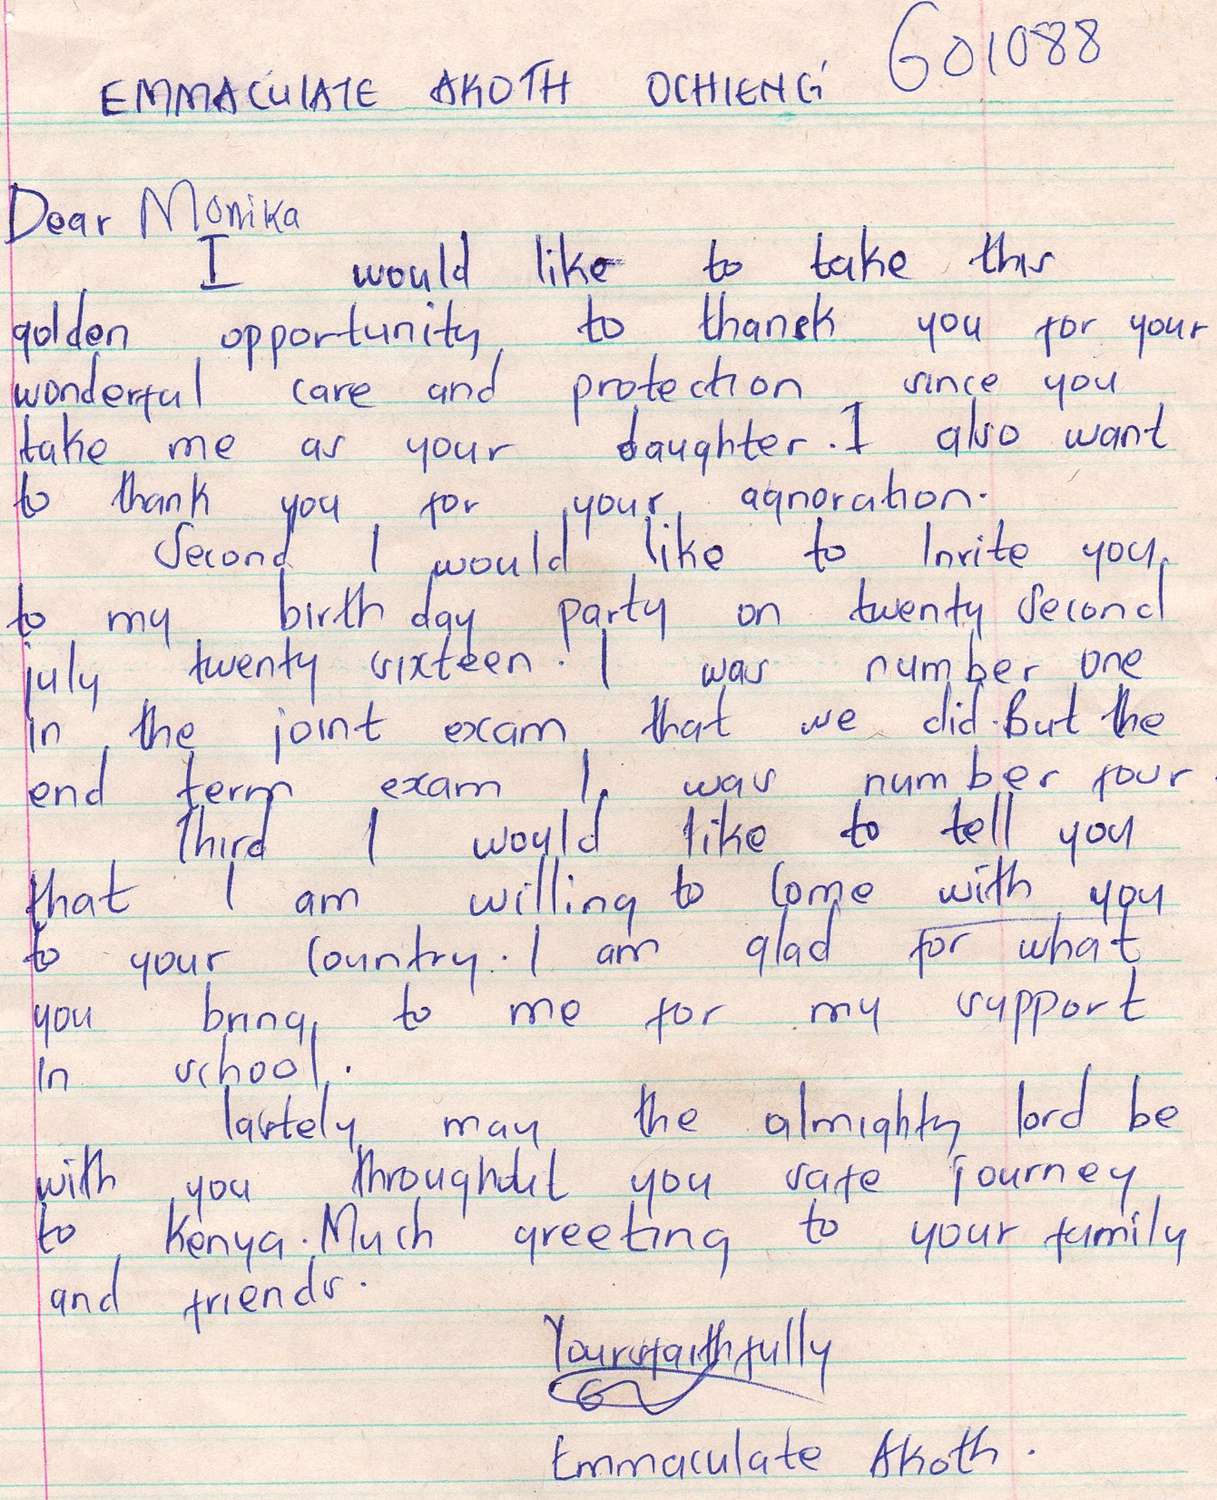 EMMACULATE AKOTH OCHIENG' G01088
Dear Monika
I would like to take this
golden opportunity to thank you for your
wonderful care and protection since you
take me as your daughter. I also want
to thank you for your agnoration.
Second I would like to Invite you
to my birth day party on twenty Second
july twenty sixteen. I was number one
in the joint exam that we did. But the
end term exam I was number four.
Third I would like to tell you
that I am willing to come with you
to your Country. I am glad for what
you bring to me for my support
in school.
lastely may the almighty lord be
with you throughout you safe journey
to Kenya. Much greeting to your family
and friends.
Yoursfaithfully
Emmaculate Akoth.